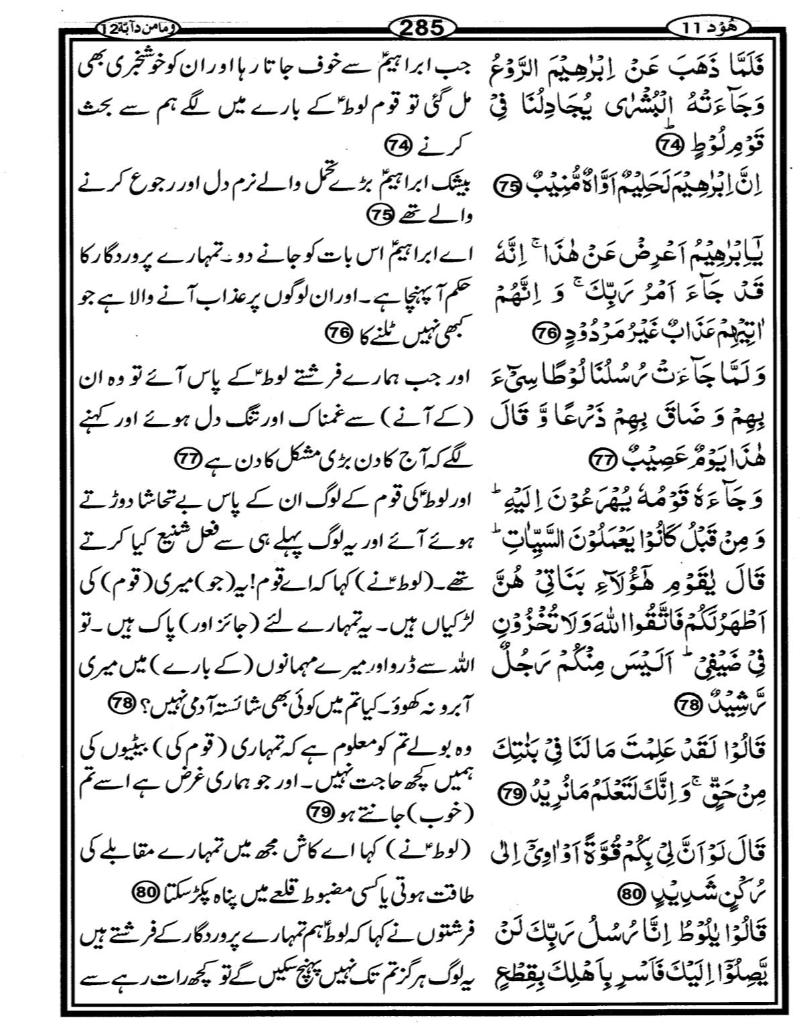 ھُوْد 11
285
وَمَا مِنْ دَآبَّة 12
فَلَمَّا ذَهَبَ عَنْ اِبْرٰهِيْمَ الرَّوْعُ
وَجَآءَتْهُ الْبُشْرٰى يُجَادِلُنَا فِيْ
قَوْمِ لُوْطٍ ؕ 74
اِنَّ اِبْرٰهِيْمَ لَحَلِيْمٌ اَوَّاهٌ مُّنِيْبٌ 75
يٰۤاِبْرٰهِيْمُ اَعْرِضْ عَنْ هٰذَا ۚ اِنَّهٗ
قَدْ جَآءَ اَمْرُ رَبِّكَ ۚ وَ اِنَّهُمْ
اٰتِيْهِمْ عَذَابٌ غَيْرُ مَرْدُوْدٍ 76
وَلَمَّا جَآءَتْ رُسُلُنَا لُوْطًا سِيْٓءَ
بِهِمْ وَ ضَاقَ بِهِمْ ذَرْعًا وَّ قَالَ
هٰذَا يَوْمٌ عَصِيْبٌ 77
وَجَآءَهٗ قَوْمُهٗ يُهْرَعُوْنَ اِلَيْهِ ؕ
وَمِنْ قَبْلُ كَانُوْا يَعْمَلُوْنَ السَّيِّاٰتِ ؕ
قَالَ يٰقَوْمِ هٰٓؤُلَآءِ بَنَاتِيْ هُنَّ
اَطْهَرُ لَكُمْ فَاتَّقُوا اللهَ وَلَا تُخْزُوْنِ
فِيْ ضَيْفِيْ ؕ اَلَيْسَ مِنْكُمْ رَجُلٌ
رَّشِيْدٌ 78
قَالُوْا لَقَدْ عَلِمْتَ مَا لَنَا فِيْ بَنٰتِكَ
مِنْ حَقٍّ ۚ وَاِنَّكَ لَتَعْلَمُ مَا نُرِيْدُ 79
قَالَ لَوْ اَنَّ لِيْ بِكُمْ قُوَّةً اَوْ اٰوِيْٓ اِلٰى
رُكْنٍ شَدِيْدٍ 80
قَالُوْا يٰلُوْطُ اِنَّا رُسُلُ رَبِّكَ لَنْ
يَّصِلُوْۤا اِلَيْكَ فَاَسْرِ بِاَهْلِكَ بِقِطْعٍ
جب ابراہیمؑ سے خوف جاتا رہا اور ان کو خوشخبری بھی
مل گئی تو قوم لوطؑ کے بارے میں لگے ہم سے بحث
کرنے 74
بیشک ابراہیمؑ بڑے تحمل والے نرم دل اور رجوع کرنے
والے تھے 75
اے ابراہیمؑ اس بات کو جانے دو۔ تمہارے پروردگار کا
حکم آ پہنچا ہے۔ اور ان لوگوں پر عذاب آنے والا ہے جو
کبھی نہیں ٹلنے کا 76
اور جب ہمارے فرشتے لوطؑ کے پاس آئے تو وہ ان
(کے آنے) سے غمناک اور تنگ دل ہوئے اور کہنے
لگے کہ آج کا دن بڑی مشکل کا دن ہے 77
اور لوطؑ کی قوم کے لوگ ان کے پاس بے تحاشا دوڑتے
ہوئے آئے اور یہ لوگ پہلے ہی سے فعل شنیع کیا کرتے
تھے۔ (لوطؑ نے) کہا کہ اے قوم! یہ (جو) میری (قوم) کی
لڑکیاں ہیں۔ یہ تمہارے لئے (جائز اور) پاک ہیں۔ تو
اللہ سے ڈرو اور میرے مہمانوں (کے بارے) میں میری
آبرو نہ کھوؤ۔ کیا تم میں کوئی بھی شائستہ آدمی نہیں؟ 78
وہ بولے تم کو معلوم ہے کہ تمہاری (قوم کی) بیٹیوں کی
ہمیں کچھ حاجت نہیں۔ اور جو ہماری غرض ہے اسے تم
(خوب) جانتے ہو 79
(لوطؑ نے) کہا اے کاش مجھ میں تمہارے مقابلے کی
طاقت ہوتی یا کسی مضبوط قلعے میں پناہ پکڑ سکتا 80
فرشتوں نے کہا کہ لوطؑ ہم تمہارے پروردگار کے فرشتے ہیں
یہ لوگ ہرگز تم تک نہیں پہنچ سکیں گے تو کچھ رات رہے سے